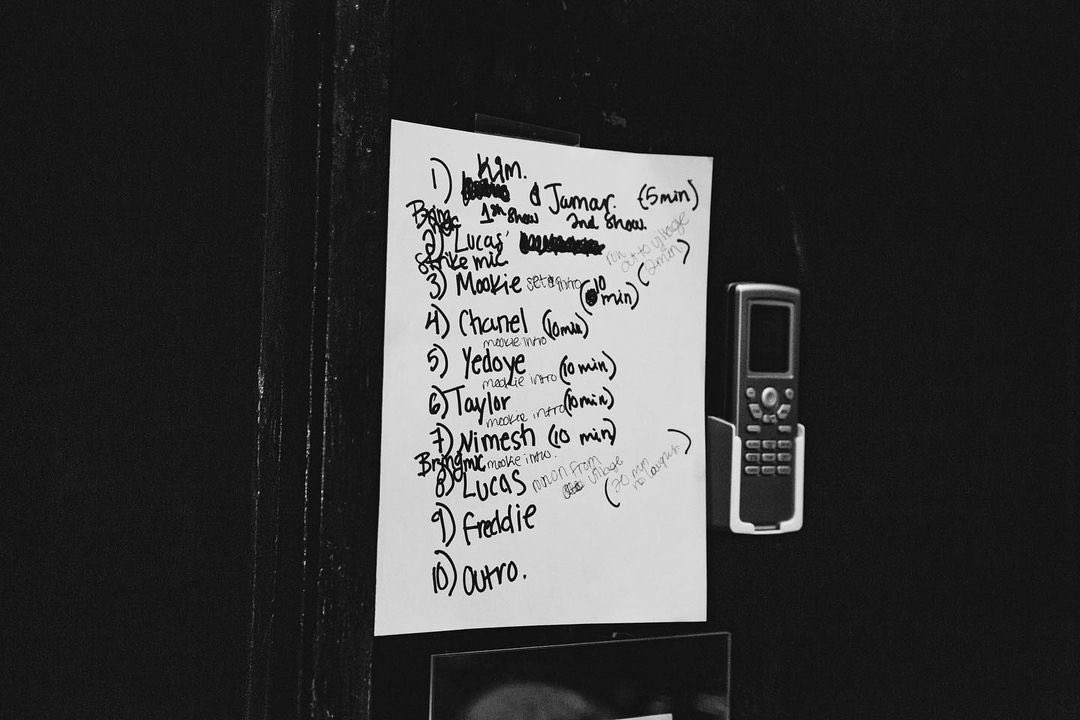 Kim.
1) Jamar. (5min)
1st show 2nd show.
Bring mic
2) Lucas run out to village (2min)
strike mic
3) Mookie set intro (10 min)
4) Chanel (10min)
mookie intro
5) Yedoye (10 min)
mookie intro
6) Taylor (10min)
mookie intro
7) Nimesh (10 min)
Bring mic mookie intro.
8) Lucas run on from village (20 min no layout)
9) Freddie
10) Outro.